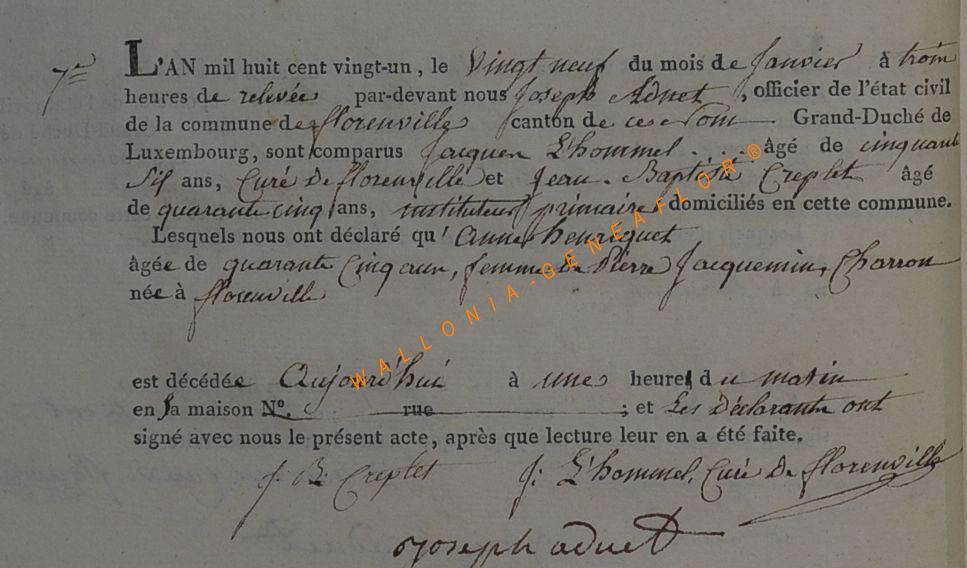 7e
L'AN mil huit cent vingt-un, le Vingt neuf du mois de Janvier à trois
heures de relevée par-devant nous Joseph Adnet, officier de l'état civil
de la commune de florenville canton de ce nom Grand-Duché de
Luxembourg, sont comparus Jacques L'hommel .... âgé de cinquante
Six ans, Curé De florenville et Jean-Baptiste Creplet âgé
de quarante cinq ans, instituteur primaire domiciliés en cette commune.
Lesquels nous ont déclaré qu'Anne henriquet
âgée de quarante Cinq ans, femme de Pierre Jacquemin, Charron
née à florenville
est décédée Aujourd'hui à une heure du matin
en sa maison N°. rue ; et Les Déclarants ont
signé avec nous le présent acte, après que lecture leur en a été faite.
J. B. Creplet J. L'hommel, Curé De florenville
Joseph adnet
WALLONIA-GENEAFLOR®